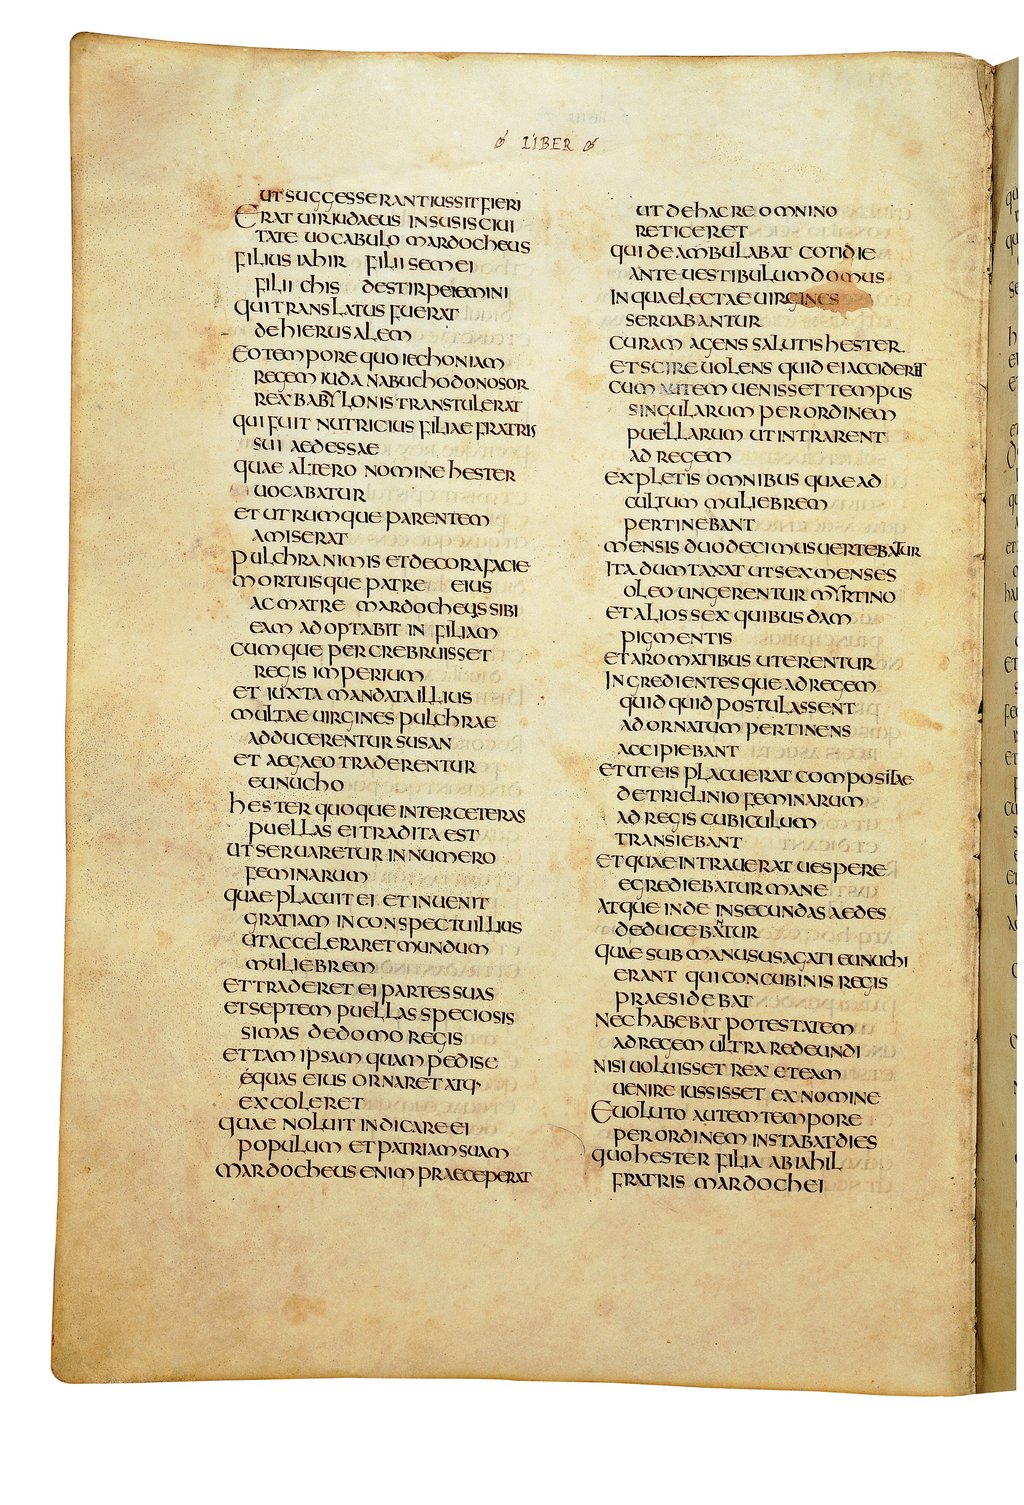 LIBER
UT SUGGESSERANT IUSSIT FIERI
ERAT UIR IUDAEUS IN SUSIS CIUI
TATE UOCABULO MARDOCHEUS
FILIUS IAHIR FILII SEMEI
FILII CHIS DE STIRPE IEMINI
QUI TRANSLATUS FUERAT
DE HIERUSALEM
EO TEMPORE QUO IECHONIAM
REGEM IUDA NABUCHODONOSOR
REX BABYLONIS TRANSTULERAT
QUI FUIT NUTRICIUS FILIAE FRATRIS
SUI AEDESSAE
QUAE ALTERO NOMINE HESTER
UOCABATUR
ET UTRUMQUE PARENTEM
AMISERAT
PULCHRA NIMIS ET DECORA FACIE
MORTUISQUE PATRE EIUS
AC MATRE MARDOCHEUS SIBI
EAM ADOPTABIT IN FILIAM
CUMQUE PERCREBRUISSET
REGIS IMPERIUM
ET IUXTA MANDATA ILLIUS
MULTAE UIRGINES PULCHRAE
ADDUCERENTUR SUSAN
ET AEGAEO TRADERENTUR
EUNUCHO
HESTER QUOQUE INTER CETERAS
PUELLAS EI TRADITA EST
UT SERUARETUR IN NUMERO
FEMINARUM
QUAE PLACUIT EI ET INUENIT
GRATIAM IN CONSPECTU ILLIUS
UT ACCELERARET MUNDUM
MULIEBREM
ET TRADERET EI PARTES SUAS
ET SEPTEM PUELLAS SPECIOSIS
SIMAS DE DOMO REGIS
ET TAM IPSAM QUAM PEDISE
EQUAS EIUS ORNARET ATQ·
EXCOLERET
QUAE NOLUIT INDICARE EI
POPULUM ET PATRIAM SUAM
MARDOCHEUS ENIM PRAECEPERAT
UT DE HAC RE OMNINO
RETICERET
QUI DEAMBULABAT COTIDIE
ANTE UESTIBULUM DOMUS
IN QUA ELECTAE UIRGINES
SERUABANTUR
CURAM AGENS SALUTIS HESTER
ET SCIRE UOLENS QUID EI ACCIDERET
CUM AUTEM UENISSET TEMPUS
SINGULARUM PER ORDINEM
PUELLARUM UT INTRARENT
AD REGEM
EXPLETIS OMNIBUS QUAE AD
CULTUM MULIEBREM
PERTINEBANT
MENSIS DUODECIMUS UERTEBATUR
ITA DUMTAXAT UT SEX MENSES
OLEO UNGERENTUR MYRTINO
ET ALIOS SEX QUIBUSDAM
PIGMENTIS
ET AROMATIBUS UTERENTUR
INGREDIENTESQUE AD REGEM
QUIDQUID POSTULASSENT
AD ORNATUM PERTINENS
ACCIPIEBANT
ET UT EIS PLACUERAT COMPOSITAE
DE TRICLINIO FEMINARUM
AD REGIS CUBICULUM
TRANSIEBANT
ET QUAE INTRAUERAT UESPERE
EGREDIEBATUR MANE
ATQUE INDE IN SECUNDAS AEDES
DEDUCEBANTUR
QUAE SUB MANU SUSAGATI EUNUCHI
ERANT QUI CONCUBINIS REGIS
PRAESIDEBAT
NEC HABEBAT POTESTATEM
AD REGEM ULTRA REDEUNDI
NISI UOLUISSET REX ET EAM
UENIRE IUSSISSET EX NOMINE
EUOLUTO AUTEM TEMPORE
PER ORDINEM INSTABAT DIES
QUO HESTER FILIA ABIAHIL
FRATRIS MARDOCHEI